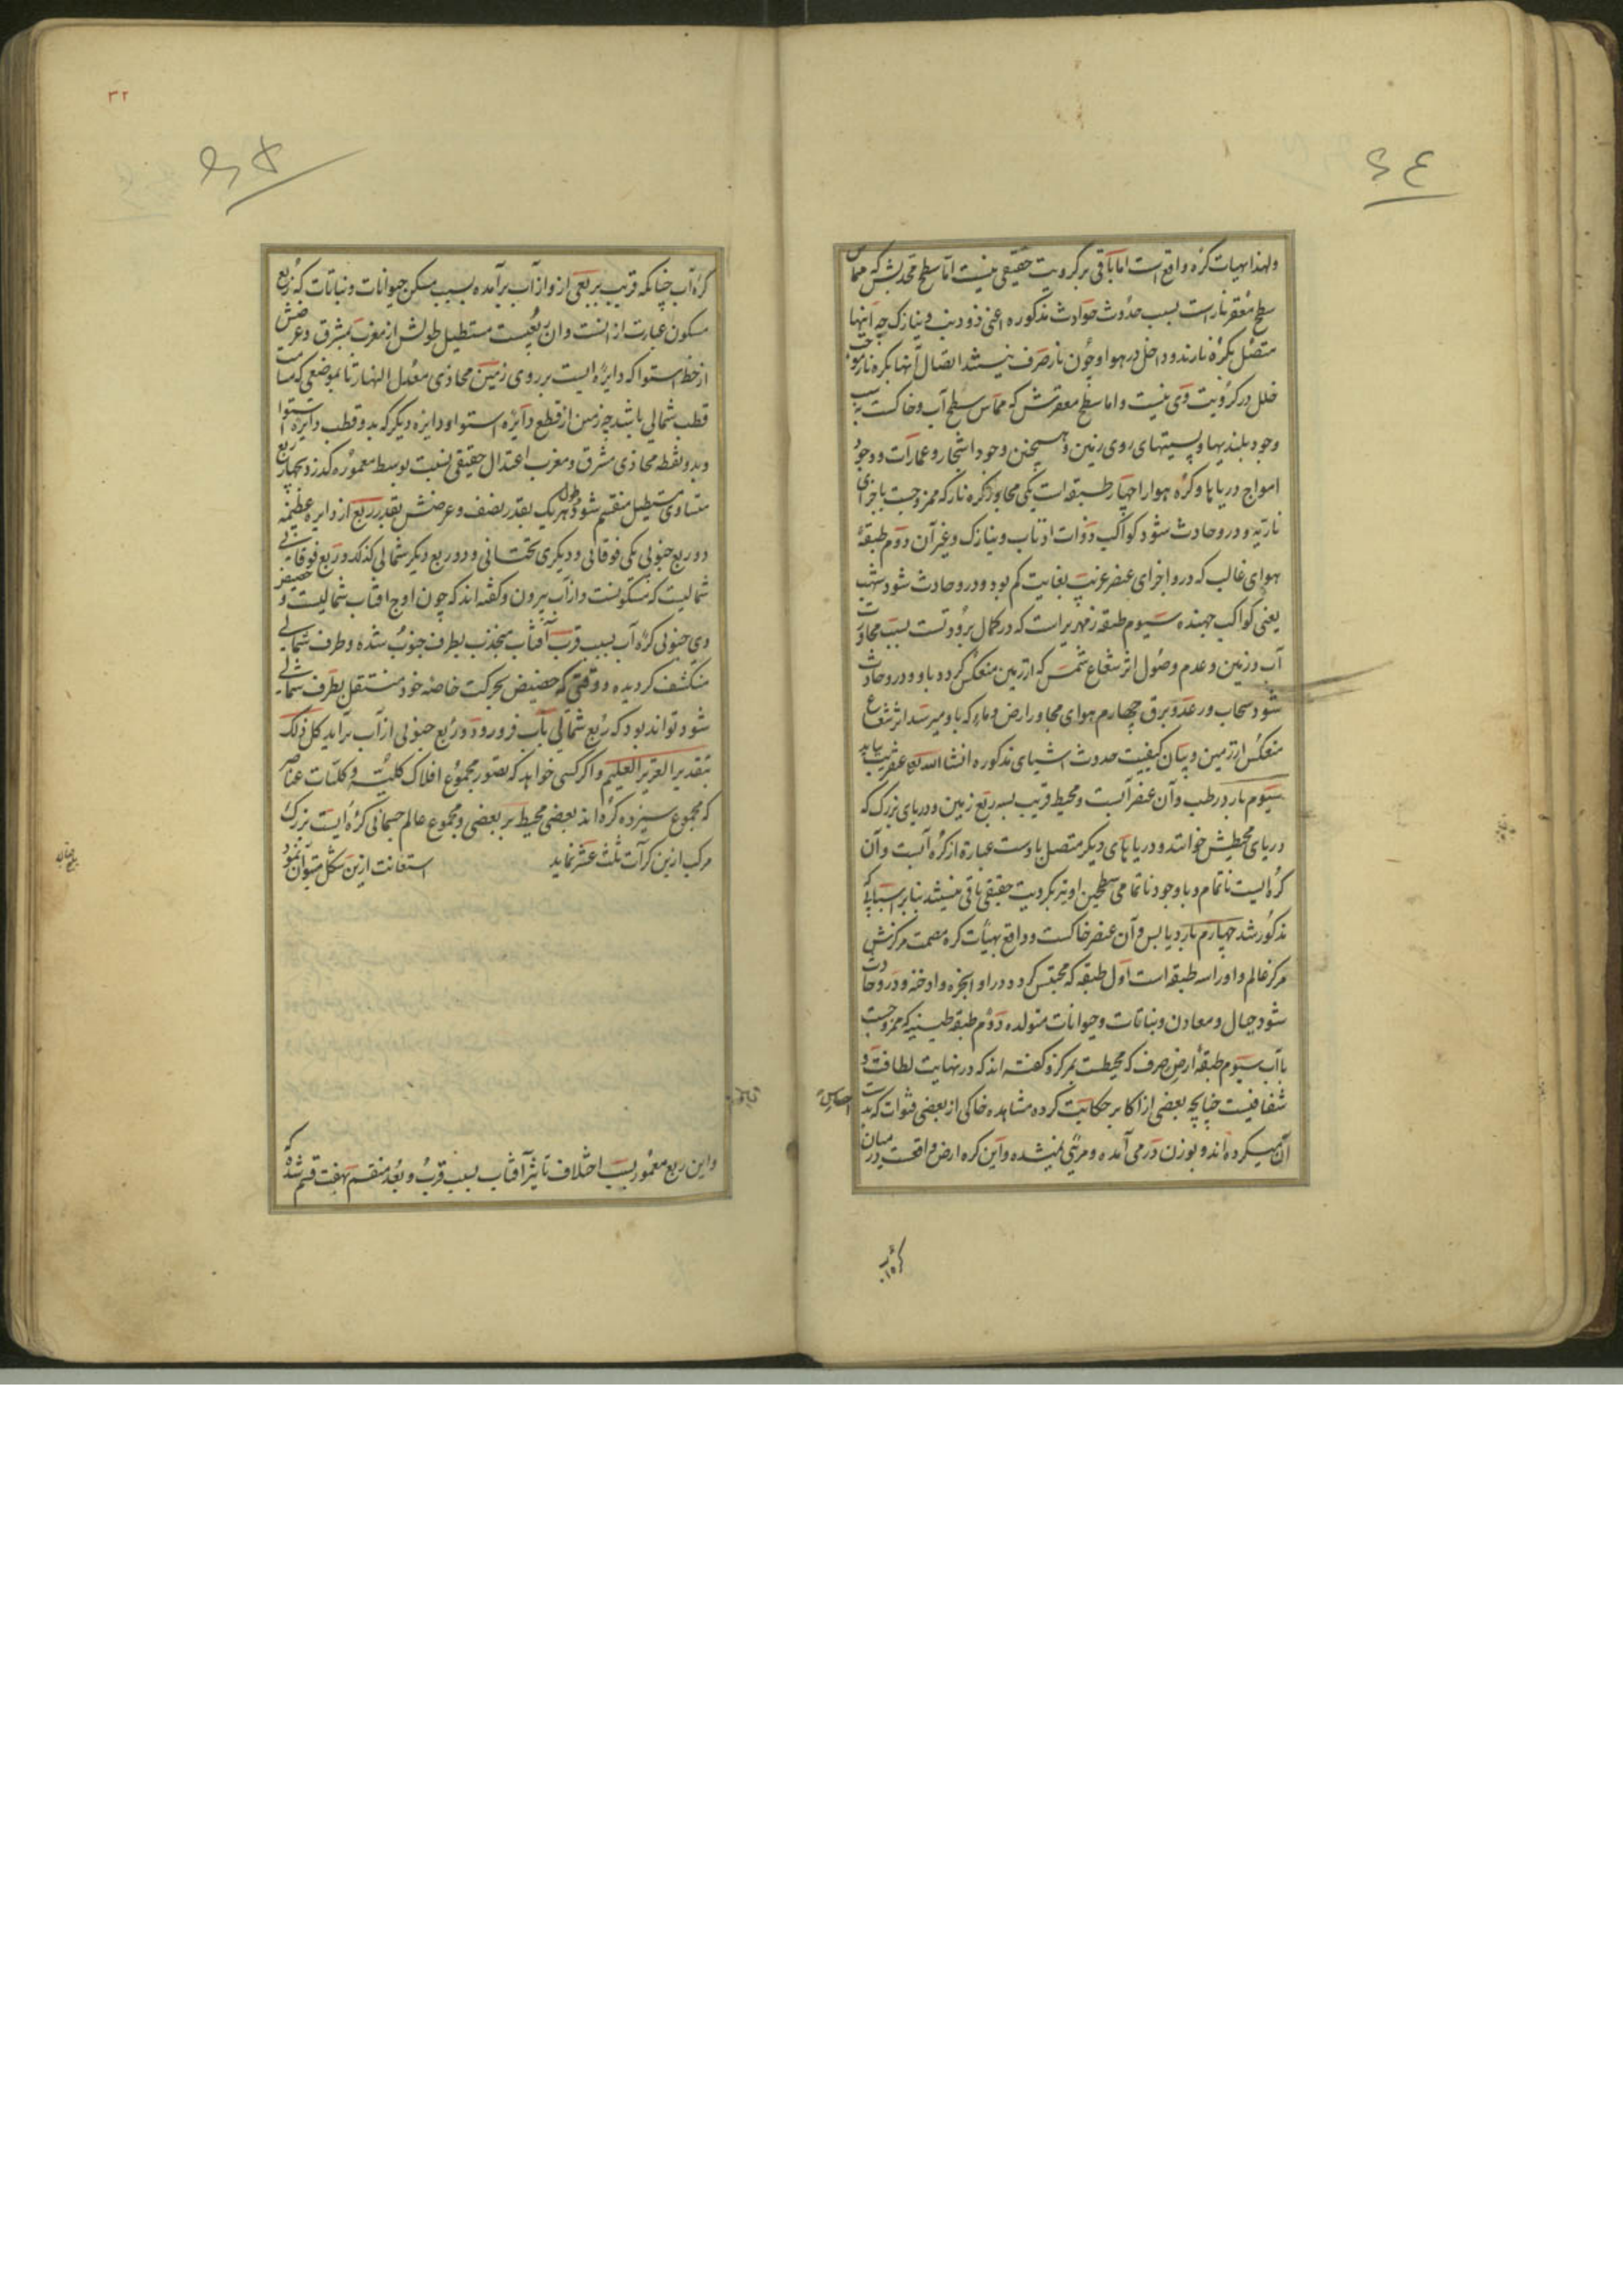 ولهذا بهیات کره واقع است اما باقی بر کرویت حقیقی نیست اما سطح محدبش که مماس
سطح مقعر نار است بسبب حدوث حوادث مذکوره اعنی ذوذنب و نیازک چه اینها
متصل بکره نارند و داخل در هوا و چون نار صرف نیستند اتصال آنها بکره نار موجب
خلل در کرویت وی نیست و اما سطح مقعرش که مماس سطح آب و خاکست بسبب
وجود بلندیها و پستیهای روی زمین و همچنین وجود اشجار و عمارات و وجود
امواج دریاها و کره هوا را چهار طبقه است یکی مجاور کره نار که ممزوجست باجزای
ناریه و درو حادث شود کواکب ذوات اذناب و نیازک و غیر آن دوم طبقه
هوای غالب که درو اجزای عنصر غریب بغایت کم بود و درو حادث شود شهب
یعنی کواکب جهنده سیوم طبقه زمهریر است که در کمال برودتست بسبب مجاورت
آب و زمین و عدم وصول اثر شعاع شمس که از زمین منعکس کردد باو و درو حادث
شود سحاب و رعد و برق چهارم هوای مجاور ارض و ماء که باو میرسد اثر شعاع
منعکس از زمین و بیان کیفیت حدوث اشیای مذکوره انشاالله تعالی عنقریب بیاید
سیوم بارد رطب و آن عنصر آبست و محیط قریب بسه ربع زمین و دریای بزرک که
دریای محیطش خوانند و دریاهای دیکر متصل باوست عبارة از کره آبست و آن
کره ایست ناتمام و با وجود ناتمامی سطحین او نیز بکرویت حقیقی باقی نیستند بنا بر اسبابی که
مذکور شد چهارم بارد یابس و آن عنصر خاکست و واقع بهیات کره مصمت مرکزش
مرکز عالم و او را سه طبقه است اول طبقه که محتبس کردد در او ابخره و ادخنه و درو حادث
شود جبال و معادن و نباتات و حیوانات متولده دوم طبقه طینیه که ممزوجست
باآب سیوم طبقه ارض صرف که محیطست بمرکز و کفته اند که در نهایت لطافت و
شفافیست چنانچه بعضی از اکابر حکایت کرده مشاهده خاکی از بعضی که بدست
آن میکرده اند و بوزن در می آمده و مرئی نمیشده و این کره ارض واقعست در میان
کره آب
کره آب چنانکه قریب بربعی ازو از آب برآمده بسبب مسکن حیوانات و نباتات که ربع
مسکون عبارت از انست و ان ربعیست مستطیل طولش از مغرب بمشرق و عرضش
از خط استوا که دایره ایست بر روی زمین محاذی معدل النهار تا بموضعی که مسامت
قطب شمالی باشد چه زمین از قطع دایره استوا و دایره دیکر که بدو قطب دایره استوا
و بدو نقطه محاذی مشرق و مغرب اعتدال حقیقی نسبت بوسط معموره کذرد بچهار ربع
متساوی مستطیل منقسم شود طول هریک بقدر نصف و عرضش بقدر ربع از دایره عظیمه
دو ربع جنوبی یکی فوقانی و دیکری تحتانی و دو ربع دیکر شمالی کذلک و ربع فوقانی
شمالیست که مسکونست و از آب بیرون و کفته اند که چون اوج افتاب شمالیست و حضیض
وی جنوبی کره آب بسبب قرب آفتاب منجذب بطرف جنوب شده و طرف شمالی
منکشف کردیده و وقتی که حضیض بحرکت خاصه خود منتقل بطرف شمالی
شود تواند بود که ربع شمالی بآب فرو رود و ربع جنوبی از آب برآید کل ذلک
بتقدیر العزیز العلیم و اکر کسی خواهد که تصور مجموع افلاک کلیه و کلیات عناصر
که مجموع سیزده کره اند بعضی محیط بر بعضی و مجموع عالم جسمانی کره ایست بزرک
مرکب ازین کرات ثلث عشر نماید استعانت ازین شکل میتوان نمود
واین ربع معمور بسبب اختلاف تاثیر آفتاب بسبب قرب و بعد منقسم بهفت قسم شده که
۳۲